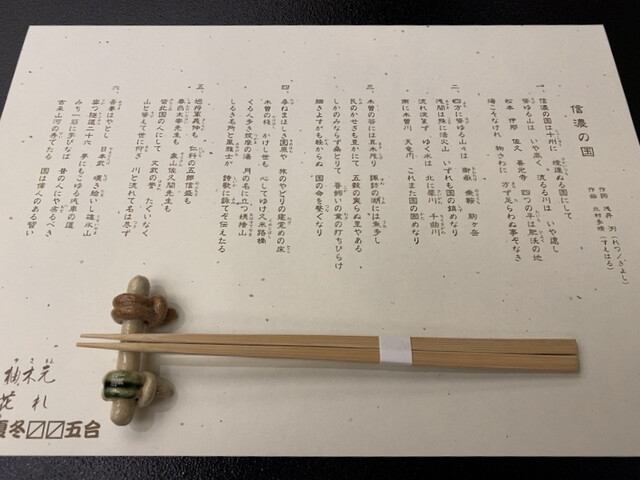 信濃の国
作詞 浅井 列(れつ/きよし)
作曲 北村季晴(すえはる)
一、
信濃の国は十州に 境連ぬる国にして
聳ゆる山は いや高く 流るる川は いや遠し
松本 伊那 佐久 善光寺 四つの平は肥沃の地
海こそなけれ 物さわに 万ず足らわぬ事ぞなき
二、
四方に聳ゆる山々は 御嶽 乗鞍 駒ヶ岳
浅間は殊に活火山 いずれも国の鎮めなり
流れ淀まず ゆく水は 北に犀川 千曲川
南に木曽川 天竜川 これまた国の固めなり
三、
木曽の谷には真木茂り 諏訪の湖には魚多し
民のかせぎも豊かにて 五穀の実らぬ里やある
しかのみならず桑とりて 蚕飼いの業の打ちひらけ
細きよすがも軽からぬ 国の命を繋ぐなり
四、
尋ねまほしき園原や 旅のやどりの寝覚めの床
木曽の桟 かけし世も 心してゆけ久米路橋
くる人多き筑摩の湯 月の名に立つ姨捨山
しるき名所と風雅士が 詩歌に詠てぞ伝えたる
五、
旭将軍義仲も 仁科の五郎信盛も
春台太宰先生も 象山佐久間先生も
皆此国の人にして 文武の誉 たぐいなく
山と聳えて世に仰ぎ 川と流れて名は尽ず
六、
吾妻はやとし 日本武 嘆き給いし碓氷山
穿つ隧道二十六 夢にもこゆる汽車の道
みち一筋に学びなば 昔の人にや劣るべき
古来山河の秀でたる 国は偉人のある習い
柚木元
夏冬〼〼五台